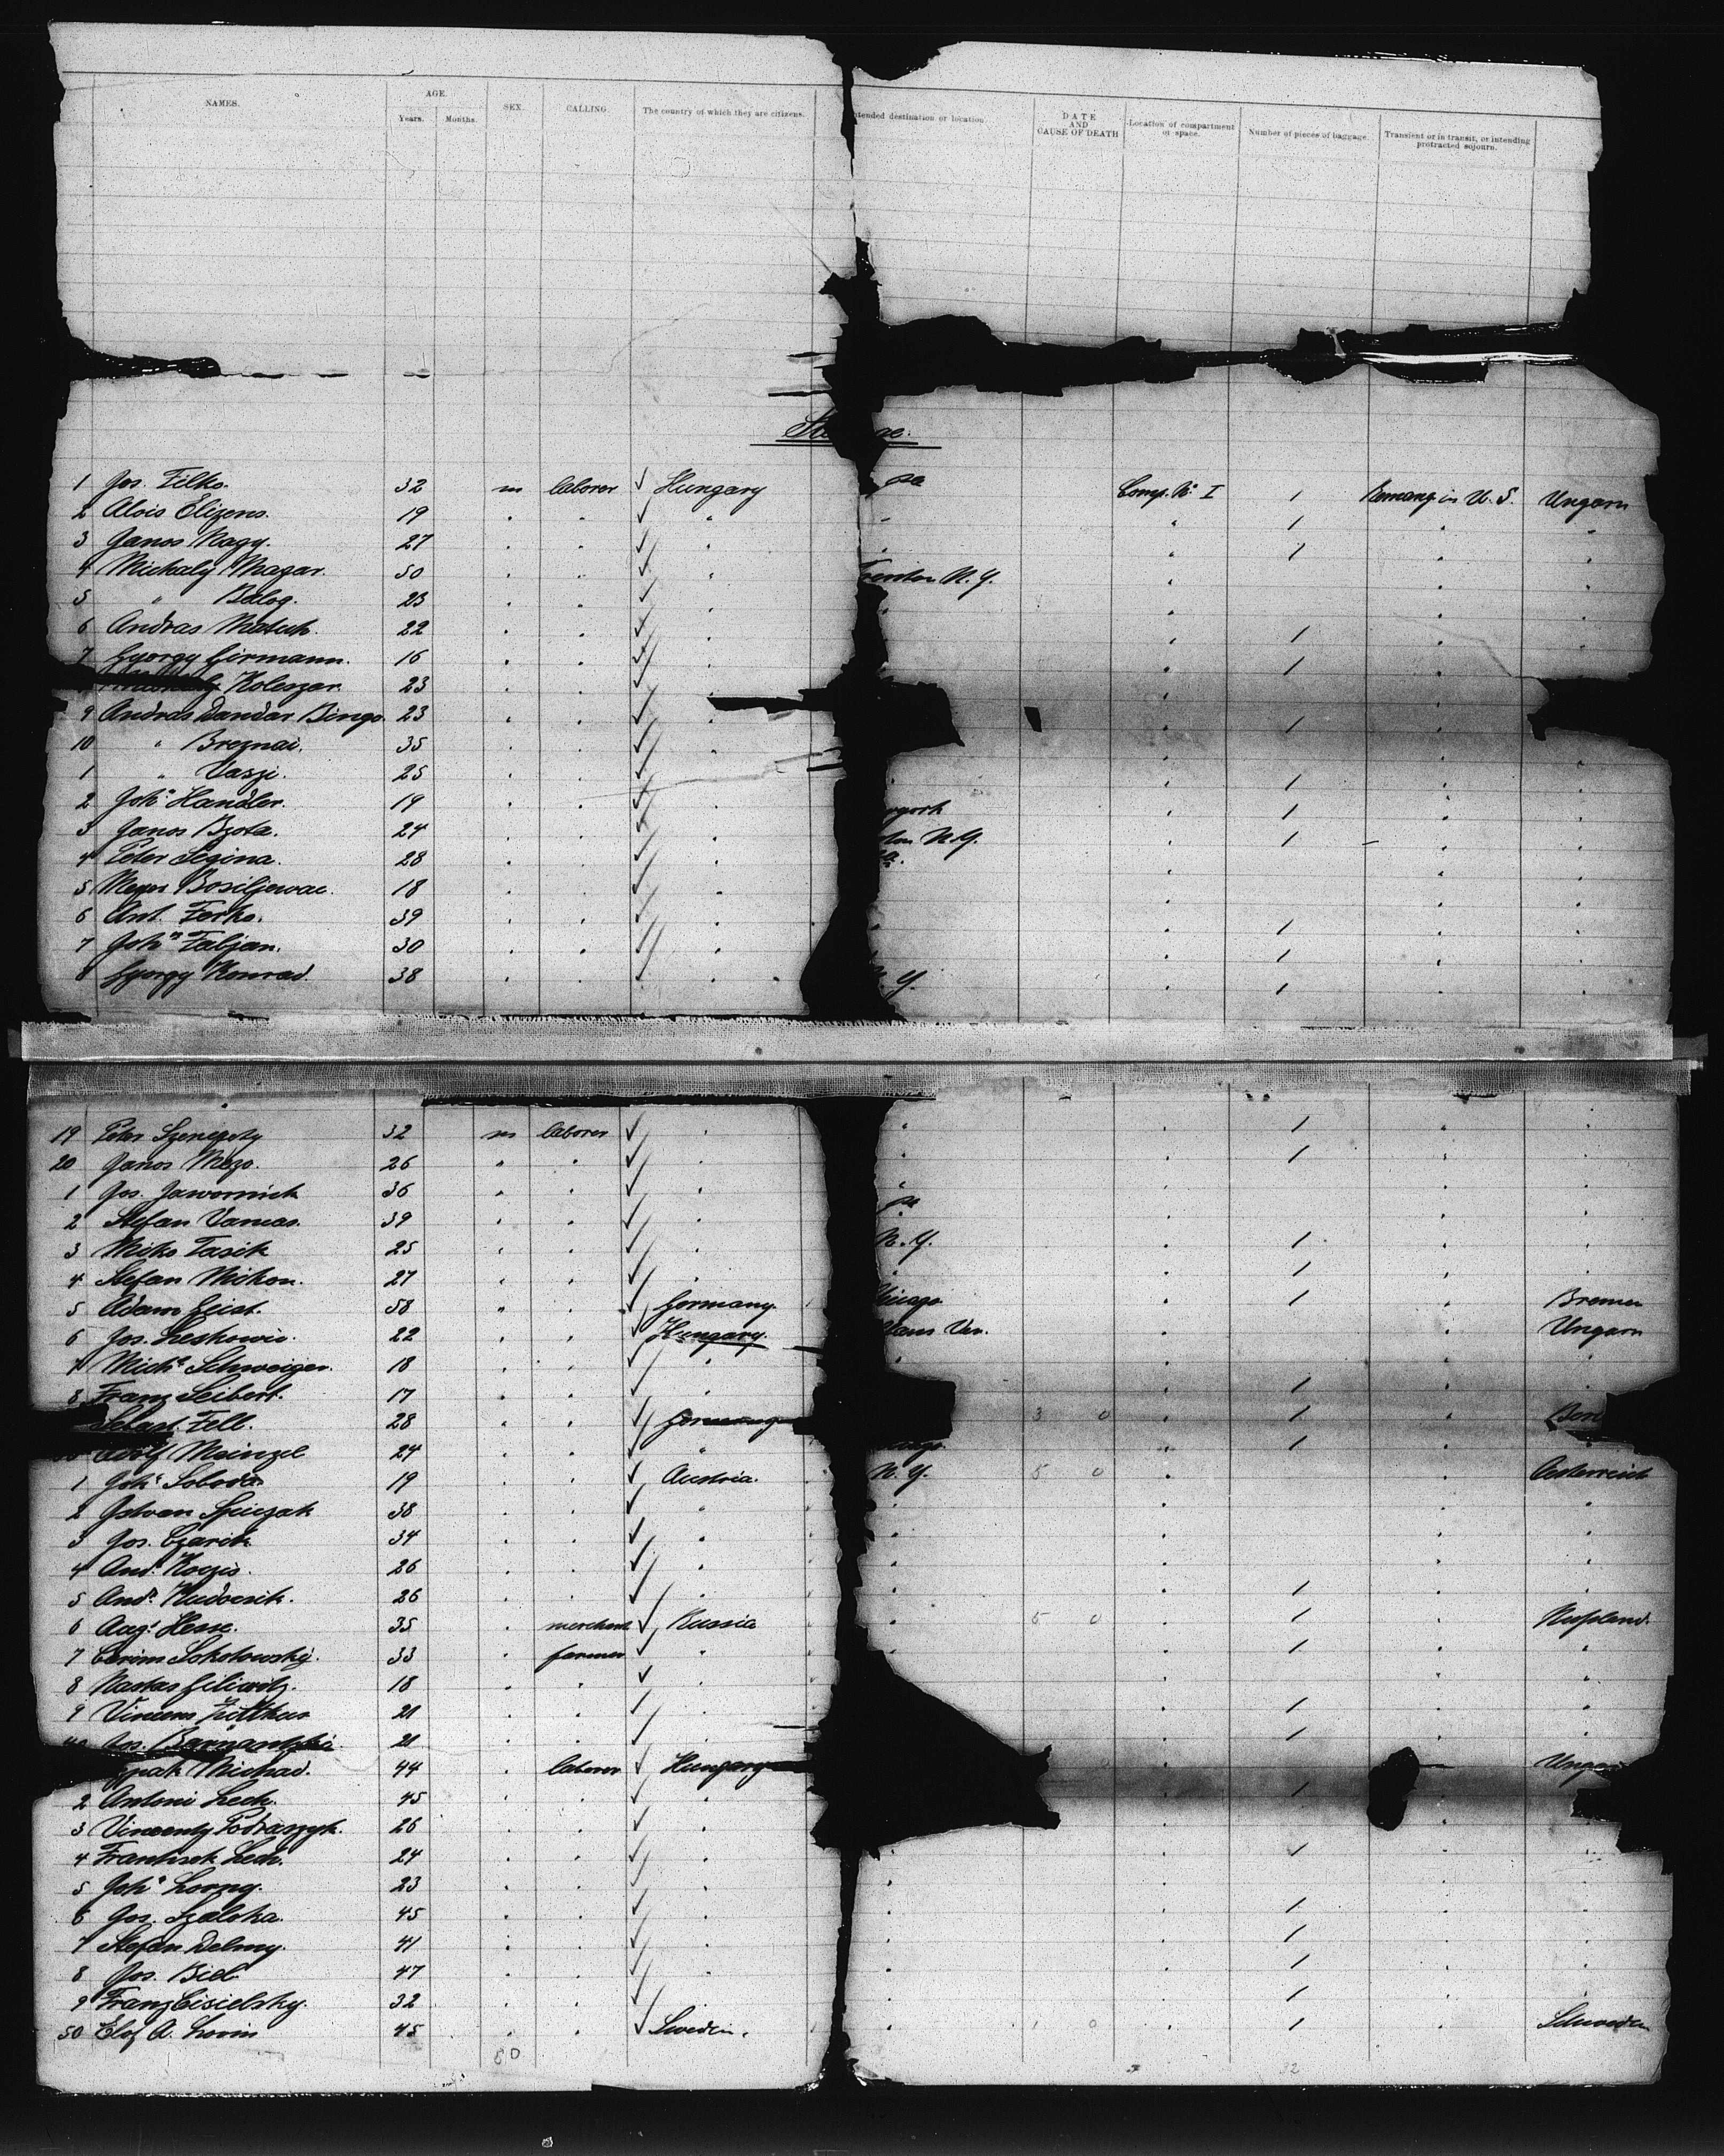 NAMES. AGE. Years. Months. SEX. CALLING. The country of which they are citizens. ntended destination or location. DATE AND CAUSE OF DEATH Location of compartment or space. Number of pieces of baggage. Transient or in transit, or intending protracted sojourn.
1 Jos. Filko. 32 m laborer ✓ Hungary pa Comp. No I / in U. S. Ungarn
2 Alois Elizens. 19 " " ✓ " " " / " "
3 Janos Nagy. 27 " " ✓ " " " / " "
4 Michaly Magar. 50 " " ✓ " N. Y. " " "
5 " Balog. 23 " " ✓ " " " " "
6 Andras Matuch. 22 " " ✓ " " / " "
7 Gyorgy Girmann. 16 " " ✓ " " / " "
Koleszar. 23 " " ✓ " " "
9 Andras Dandar Bingo. 23 " " ✓ " " / "
10 " Breznai. 35 " " ✓ " " " "
1 " Vaszi. 25 " " ✓ " " " / " "
2 Joh. Handler. 19 " " ✓ " york " / " "
3 Janos Bzota. 24 " " ✓ " ton N.Y. " / " "
4 Peter Segina. 28 " " ✓ " a. " " "
5 Bosiljevac. 18 " " ✓ " " " "
6 Ant. Ferko. 39 " " ✓ " " / " "
7 John Fabjan. 30 " " ✓ " " / " "
8 Gyorgy Konrad. 38 " " ✓ " Y. " / " "
19 Peter 32 m laborer ✓ " " " / " "
20 Janos Mezo. 26 " " ✓ " " " / " "
1 Jos. Jawornick 36 " " ✓ " " " " "
2 Stefan Vamos. 39 " " ✓ " pa " " "
3 Miko Tasik 25 " " ✓ " N. Y. " / " "
4 Stefan Mickon. 27 " " ✓ " " " / " "
5 Adam Geist. 58 " " ✓ Germany. hicago " / " Bremen
6 Jos. Leskowic. 22 " " ✓ Hungary. " " Ungarn
7 Mich. Schweiger. 18 " " ✓ " " " " "
8 Franz Seibert. 17 " " ✓ " " / " "
Fell. 28 " " ✓ Germany 3 0 " / "
Meinzel 24 " " ✓ " " / " "
1 Joh. Soboda 19 " " ✓ Austria. N. Y. 5 0 " " Oesterreich
2 Istvan Spiczak 38 " " ✓ " " " " "
3 Jos. Czarik 34 " " ✓ " " " " "
4 And. Koczis. 26 " " ✓ " " " " "
5 And. Hudocsik. 26 " " ✓ " " " / " "
6 Aug. Hesse. 35 " merchant ✓ Russia " 5 0 " / " Russland.
7 Sokolowsky. 33 " farmer ✓ " " " / " "
8 18 " " ✓ " " " "
9 21 " " ✓ " " / " "
40 Jos. 21 " " ✓ " " / " "
Michad. 44 " laborer ✓ Hungary "
2 Antoni Lech. 45 " " ✓ " " /
3 Vincenty Podraszyk. 26 " " ✓ " " " "
4 Frantisek Lech. 24 " " ✓ " " " / " "
5 Joh. 23 " " ✓ " " " " "
6 Jos. Szaloka. 45 " " ✓ " " " / " "
7 Stefan Delmy. 41 " " ✓ " " " / " "
8 Jos. Biel 47 " " ✓ " " " / " "
9 Franz Cisielsky. 32 " " ✓ " " " / " "
50 Elof A. 45 " " ✓ Sweden. " 1 0 " / " Schweden
50 32